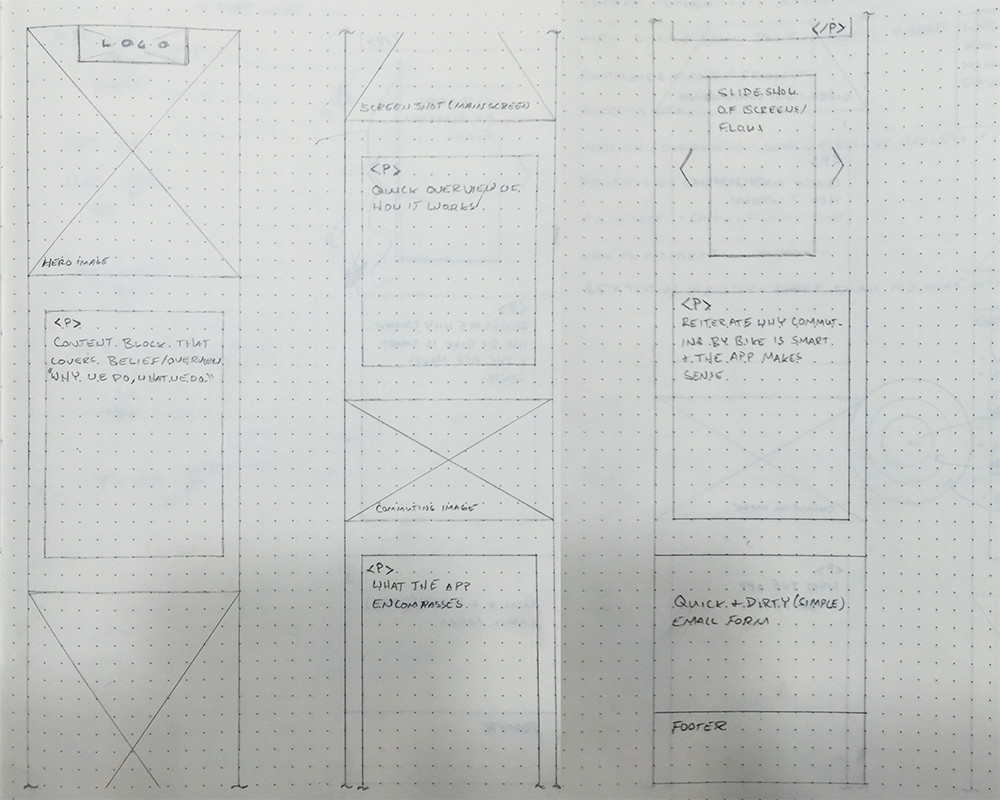 LOGO
HERO IMAGE
<P>
CONTENT BLOCK THAT
COVERS BELIEF/OVERVIEW
"WHY WE DO, WHAT WE DO."
SCREEN SHOT (MAIN SCREEN
<P>
QUICK OVERVIEW OF
HOW IT WORKS.
COMMUTING IMAGE
<P>
WHAT THE APP
ENCOMPASSES
</P>
SLIDE SHOW
OF SCREENS/
FLOWS
<P>
REITERATE WHY COMMUT-
ING BY BIKE IS SMART
+ THE APP MAKES
SENSE.
QUICK + DIRTY (SIMPLE)
EMAIL FORM
FOOTER